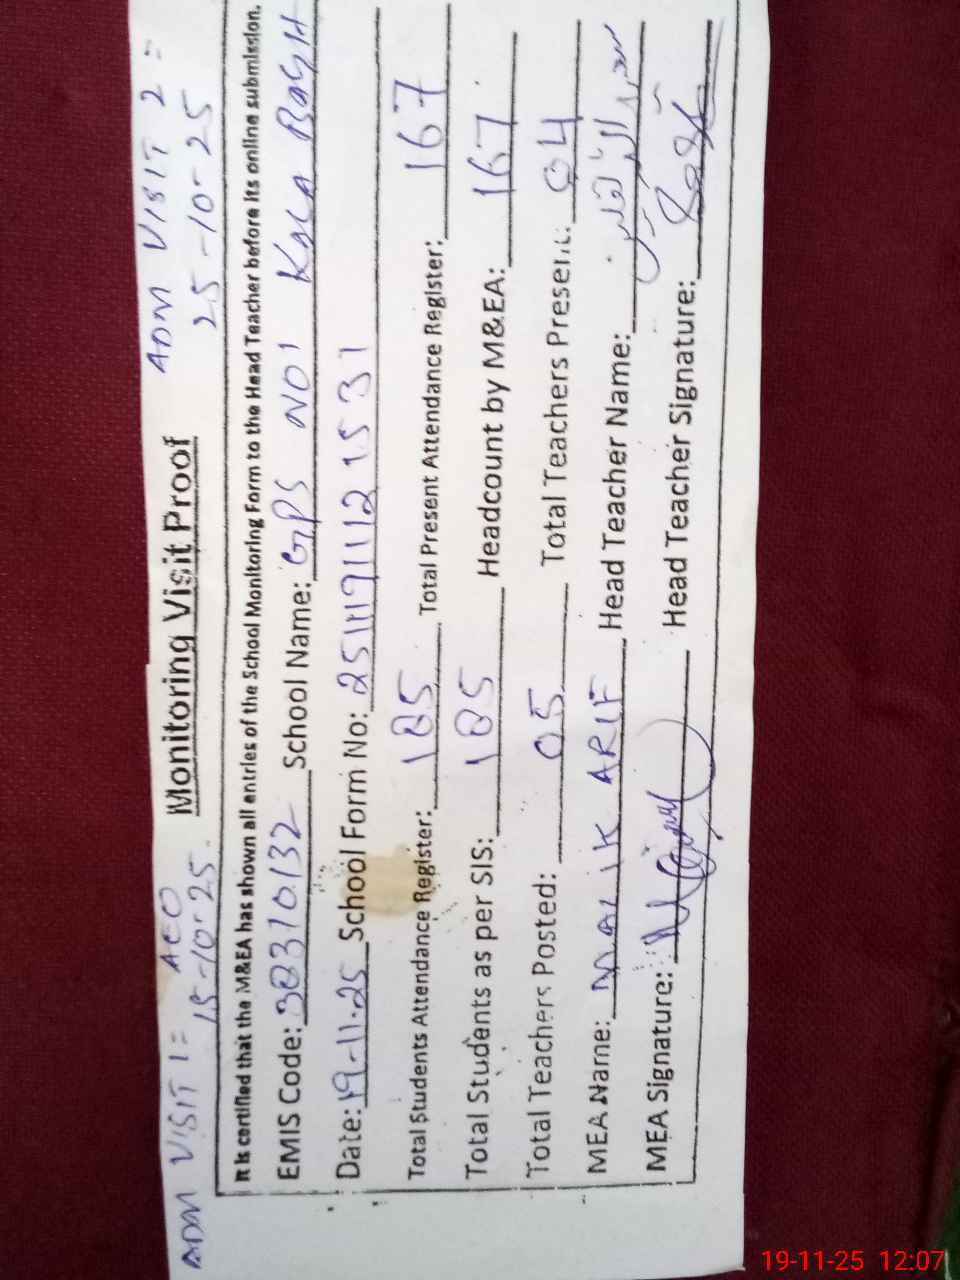 ADM VISIT 1 = AEO ADM VISIT 2 =
15-10-25. Monitoring Visit Proof 25-10-25
It is certified that the M&EA has shown all entries of the School Monitoring Form to the Head Teacher before its online submission.
EMIS Code: 38310132 School Name: GPS NO1 Kala BAGH
Date: 19-11-25 School Form No: 
Total Students Attendance Register: 185 Total Present Attendance Register: 167
Total Students as per SIS: 185 Headcount by M&EA: 167
Total Teachers Posted: 05 Total Teachers Present: 04
MEA Name: MALIK ARIF Head Teacher Name:
MEA Signature: Head Teacher Signature:
19-11-25 12:07